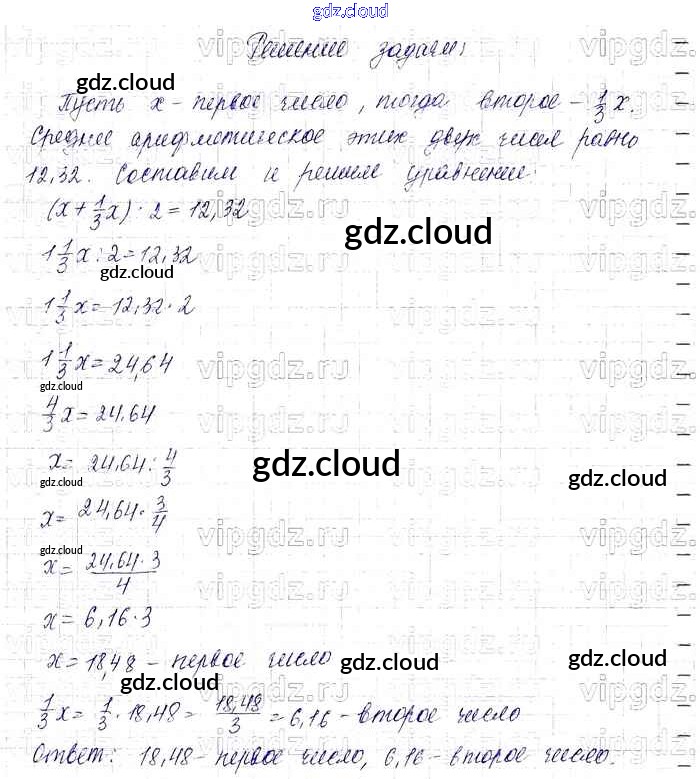 gdz.cloud
Решение задачи:
vipgdz.ru vipgdz.ru vipgdz
gdz.cloud
Пусть x - первое число, тогда второе - 1/3 x.
Среднее арифметическое этих двух чисел равно
12,32. Составим и решим уравнение:
(x + 1/3 x) · 2 = 12,32
gdz.cloud
1 1/3 x : 2 = 12,32
gdz.cloud
1 1/3 x = 12,32 · 2
vipgdz.ru vipgdz.ru
1 1/3 x = 24,64
gdz.cloud
4/3 x = 24,64
x = 24,64 : 4/3
gdz.cloud
gdz.cloud
gdz.cloud
x = 24,64 · 3/4
vipgdz.ru vipgdz.ru
gdz.cloud
x = 24,64 · 3 / 4
x = 6,16 · 3
x = 18,48 - первое число
gdz.cloud
gdz.cloud
gdz.cloud
1/3 x = 1/3 · 18,48 = 18,48/3 = 6,16 - второе число
Ответ: 18,48 - первое число, 6,16 - второе число.